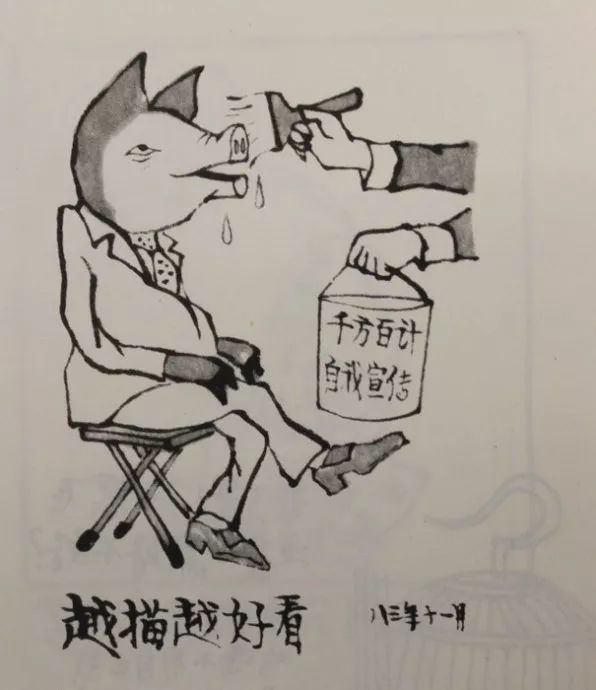 千方百计
自我宣传
越描越好看
八三年十一月